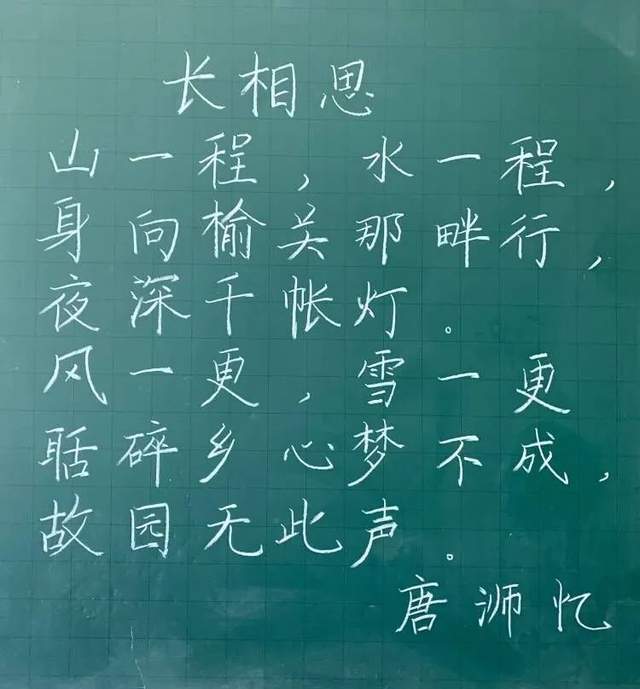 长相思
山一程，水一程，
身向榆关那畔行，
夜深千帐灯。
风一更，雪一更
聒碎乡心梦不成，
故园无此声。
唐浉忆